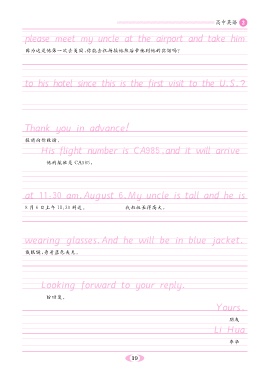 高中英语 3
please meet my uncle at the airport and take him
因为这是他第一次去美国,你能去机场接他然后带他到他的宾馆吗?
to his hotel since this is the first visit to the U.S.?
Thank you in advance!
提前向你致谢。
His flight number is CA985 .and it will arrive
他的航班是 CA985,
at 11.30 am.August 6.My uncle is tall and he is
8 月 6 日上午 11.30 到达。 我叔叔长得高大,
wearing glasses.And he will be in blue jacket.
戴眼镜,身着蓝色夹克。
Looking forward to your reply.
盼回复。
Yours,
朋友
Li Hua
李华
39